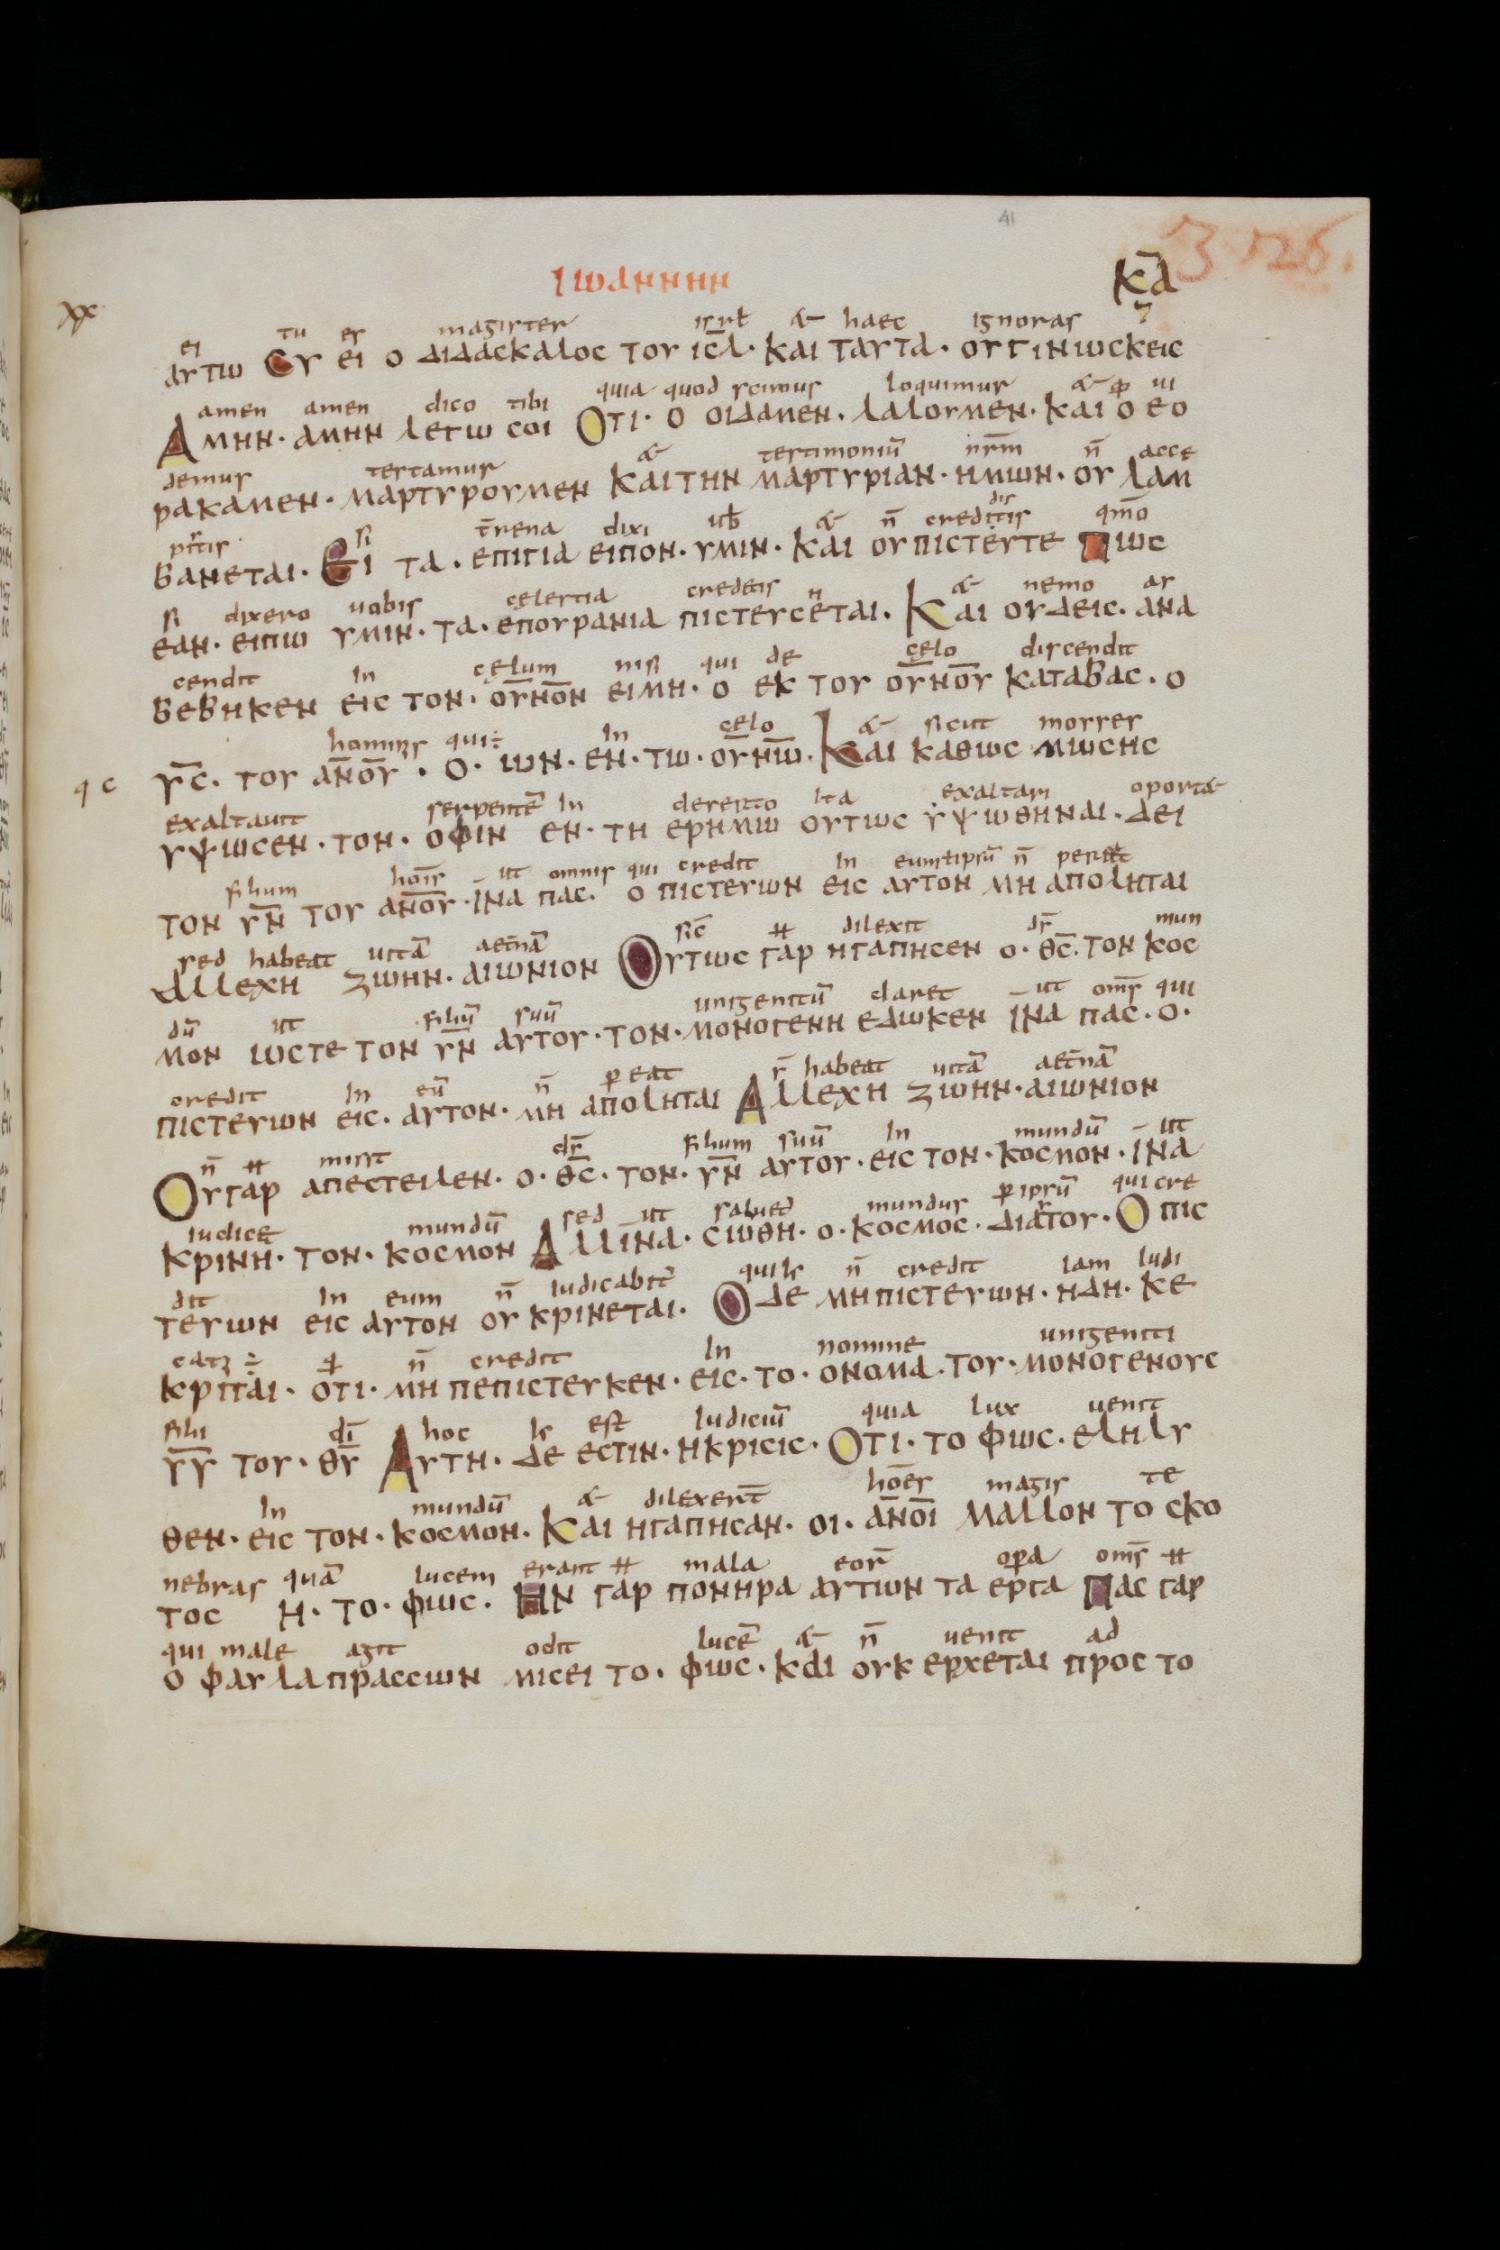 41
ΙωΑΝΝΗΝ
κ̅α̅
3 126.
xx
ei tu es magister isrl & haec ignoras
ΑΥΤω CΥ ΕΙ Ο ΔΙΔΑCΚΑλΟC ΤΟΥ ΙC̅λ· ΚΑΙ ΤΑΥΤΑ· ΟΥΓΙΝωCΚΕΙC
amen amen dico tibi quia quod scimus loquimur & ui
ΑΜΗΝ· ΑΜΗΝ λΕΓω CΟΙ ΟΤΙ· Ο ΟΙΔΑΜΕΝ· λΑλΟΥΜΕΝ· ΚΑΙ Ο ΕΟ
demus testamur & testimoniū nr̅m n̅ acce
ΡΑΚΑΜΕΝ· ΜΑΡΤΥΡΟΥΜΕΝ ΚΑΙ ΤΗΝ ΜΑΡΤΥΡΙΑΝ· ΗΜωΝ· ΟΥ λΑΜ
pitis si t̅rena dixi ub & n̅ creditis qm̅o
ΒΑΝΕΤΑΙ· ΕΙ ΤΑ· ΕΠΙΓΙΑ ΕΙΠΟΝ· ΥΜΙΝ· ΚΑΙ ΟΥ ΠΙCΤΕΥΤΕ ΠωC
si dixero uobis celestia credetis n & nemo as
ΕΑΝ· ΕΙΠω ΥΜΙΝ· ΤΑ· ΕΠΟΥΡΑΝΙΑ ΠΙCΤΕΥCΕΤΑΙ. ΚΑΙ ΟΥΔΕΙC· ΑΝΑ
cendit In celum nisi qui de celo discendit
ΒΕΒΗΚΕΝ ΕΙC ΤΟΝ· ΟΥ̅ΝΟ̅Ν ΕΙΜΗ· Ο ΕΚ ΤΟΥ ΟΥ̅ΝΟ̅Υ ΚΑΤΑΒΑC· Ο
hominis qui÷ In celo & sicut moyses
Υ̅C̅· ΤΟΥ ΑΝ̅Ο̅Υ· Ο· ωΝ· ΕΝ· ΤΩ· ΟΥ̅Νω̅. ΚΑΙ ΚΑΘωC ΜωCΗC
q c
exaltauit serpentē In deserto Ita exaltari oport&
ΥΨωCΕΝ· ΤΟΝ· ΟΦΙΝ ΕΝ· ΤΗ ΕΡΗΜω ΟΥΤωC ΥΨωΘΗΝΑΙ· ΔΕΙ
filium hois ut omnis qui credit In eumipsū n̅ pereat
ΤΟΝ Υ̅Ν̅ ΤΟΥ ΑΝ̅Ο̅Υ· ΙΝΑ ΠΑC· Ο ΠΙCΤΕΥωΝ ΕΙC ΑΥΤΟΝ ΜΗ ΑΠΟλΗΤΑΙ
sed habeat uitā aet̅nā sic̅ dilexit ds̅ mun
ΑλλΕΧΗ ΖωΗΝ· ΑΙωΝΙΟΝ ΟΥΤωC ΓΑΡ ΗΓΑΠΗCΕΝ Ο· Θ̅C̅· ΤΟΝ ΚΟC
dū ut filiū suū unigenitū daret ut oms̅ qui
ΜΟΝ ωCΤΕ ΤΟΝ Υ̅Ν̅ ΑΥΤΟΥ· ΤΟΝ· ΜΟΝΟΓΕΝΗ ΕΔωΚΕΝ ΙΝΑ ΠΑC· Ο·
credit In eū n̅ p̅eat s̅ habeat uitā aet̅nā
ΠΙCΤΕΥωΝ ΕΙC· ΑΥΤΟΝ· ΜΗ ΑΠΟλΗΤΑΙ ΑλλΕΧΗ ΖωΗΝ· ΑΙωΝΙΟΝ
n̅ misit ds̅ filium suū In mundū ut
ΟΥΓΑΡ ΑΠΕCΤΕΙλΕΝ· Ο· Θ̅C̅· ΤΟΝ· Υ̅Ν̅ ΑΥΤΟΥ· ΕΙC ΤΟΝ· ΚΟCΜΟΝ· ΙΝΑ
Iudice mundū sed ut mundus p̅ ipsū qui cre
ΚΡΙΝΗ· ΤΟΝ· ΚΟCΜΟΝ ΑλλΙΝΑ· CωΘΗ· Ο· ΚΟCΜΟC· ΔΙΑΥΤΟΥ· Ο ΠΙC
dit In eum n̅ Iudicabit̅ qui n̅ credit Iam Iudi
ΤΕΥωΝ ΕΙC ΑΥΤΟΝ ΟΥ ΚΡΙΝΕΤΑΙ· Ο ΔΕ ΜΗ ΠΙCΤΕΥωΝ· ΗΔΗ· ΚΕ
cat ÷ n̅ credit In nomine unigeniti
ΚΡΙΤΑΙ· ΟΤΙ· ΜΗ ΠΕΠΙCΤΕΥΚΕΝ· ΕΙC· ΤΟ· ΟΝΟΜΑ· ΤΟΥ· ΜΟΝΟΓΕΝΟΥC
filii di̅ hoc est Iudiciū quia lux uenit
Υ̅Υ̅ ΤΟΥ· Θ̅Υ̅ ΑΥΤΗ· ΔΕ ΕCΤΙΝ· Η ΚΡΙCΙC· ΟΤΙ· ΤΟ ΦωC· ΕλΗλΥ
In mundū & dilexer̅t ho̅es magis te
ΘΕΝ· ΕΙC ΤΟΝ· ΚΟCΜΟΝ· ΚΑΙ ΗΓΑΠΗCΑΝ· ΟΙ· ΑΝ̅ΟΙ̅ ΜΑλλΟΝ ΤΟ CΚΟ
nebras quā lucem erant mala eor̅ opa oms̅
ΤΟC Η· ΤΟ· ΦωC· ΗΝ ΓΑΡ ΠΟΝΗΡΑ ΑΥΤωΝ ΤΑ ΕΡΓΑ ΠΑC ΓΑΡ
qui male agit odit lucē & n̅ uenit ad
Ο ΦΑΥλΑ ΠΡΑCCωΝ ΜΙCΕΙ ΤΟ· ΦωC· ΚΑΙ ΟΥΚ ΕΡΧΕΤΑΙ ΠΡΟC ΤΟ